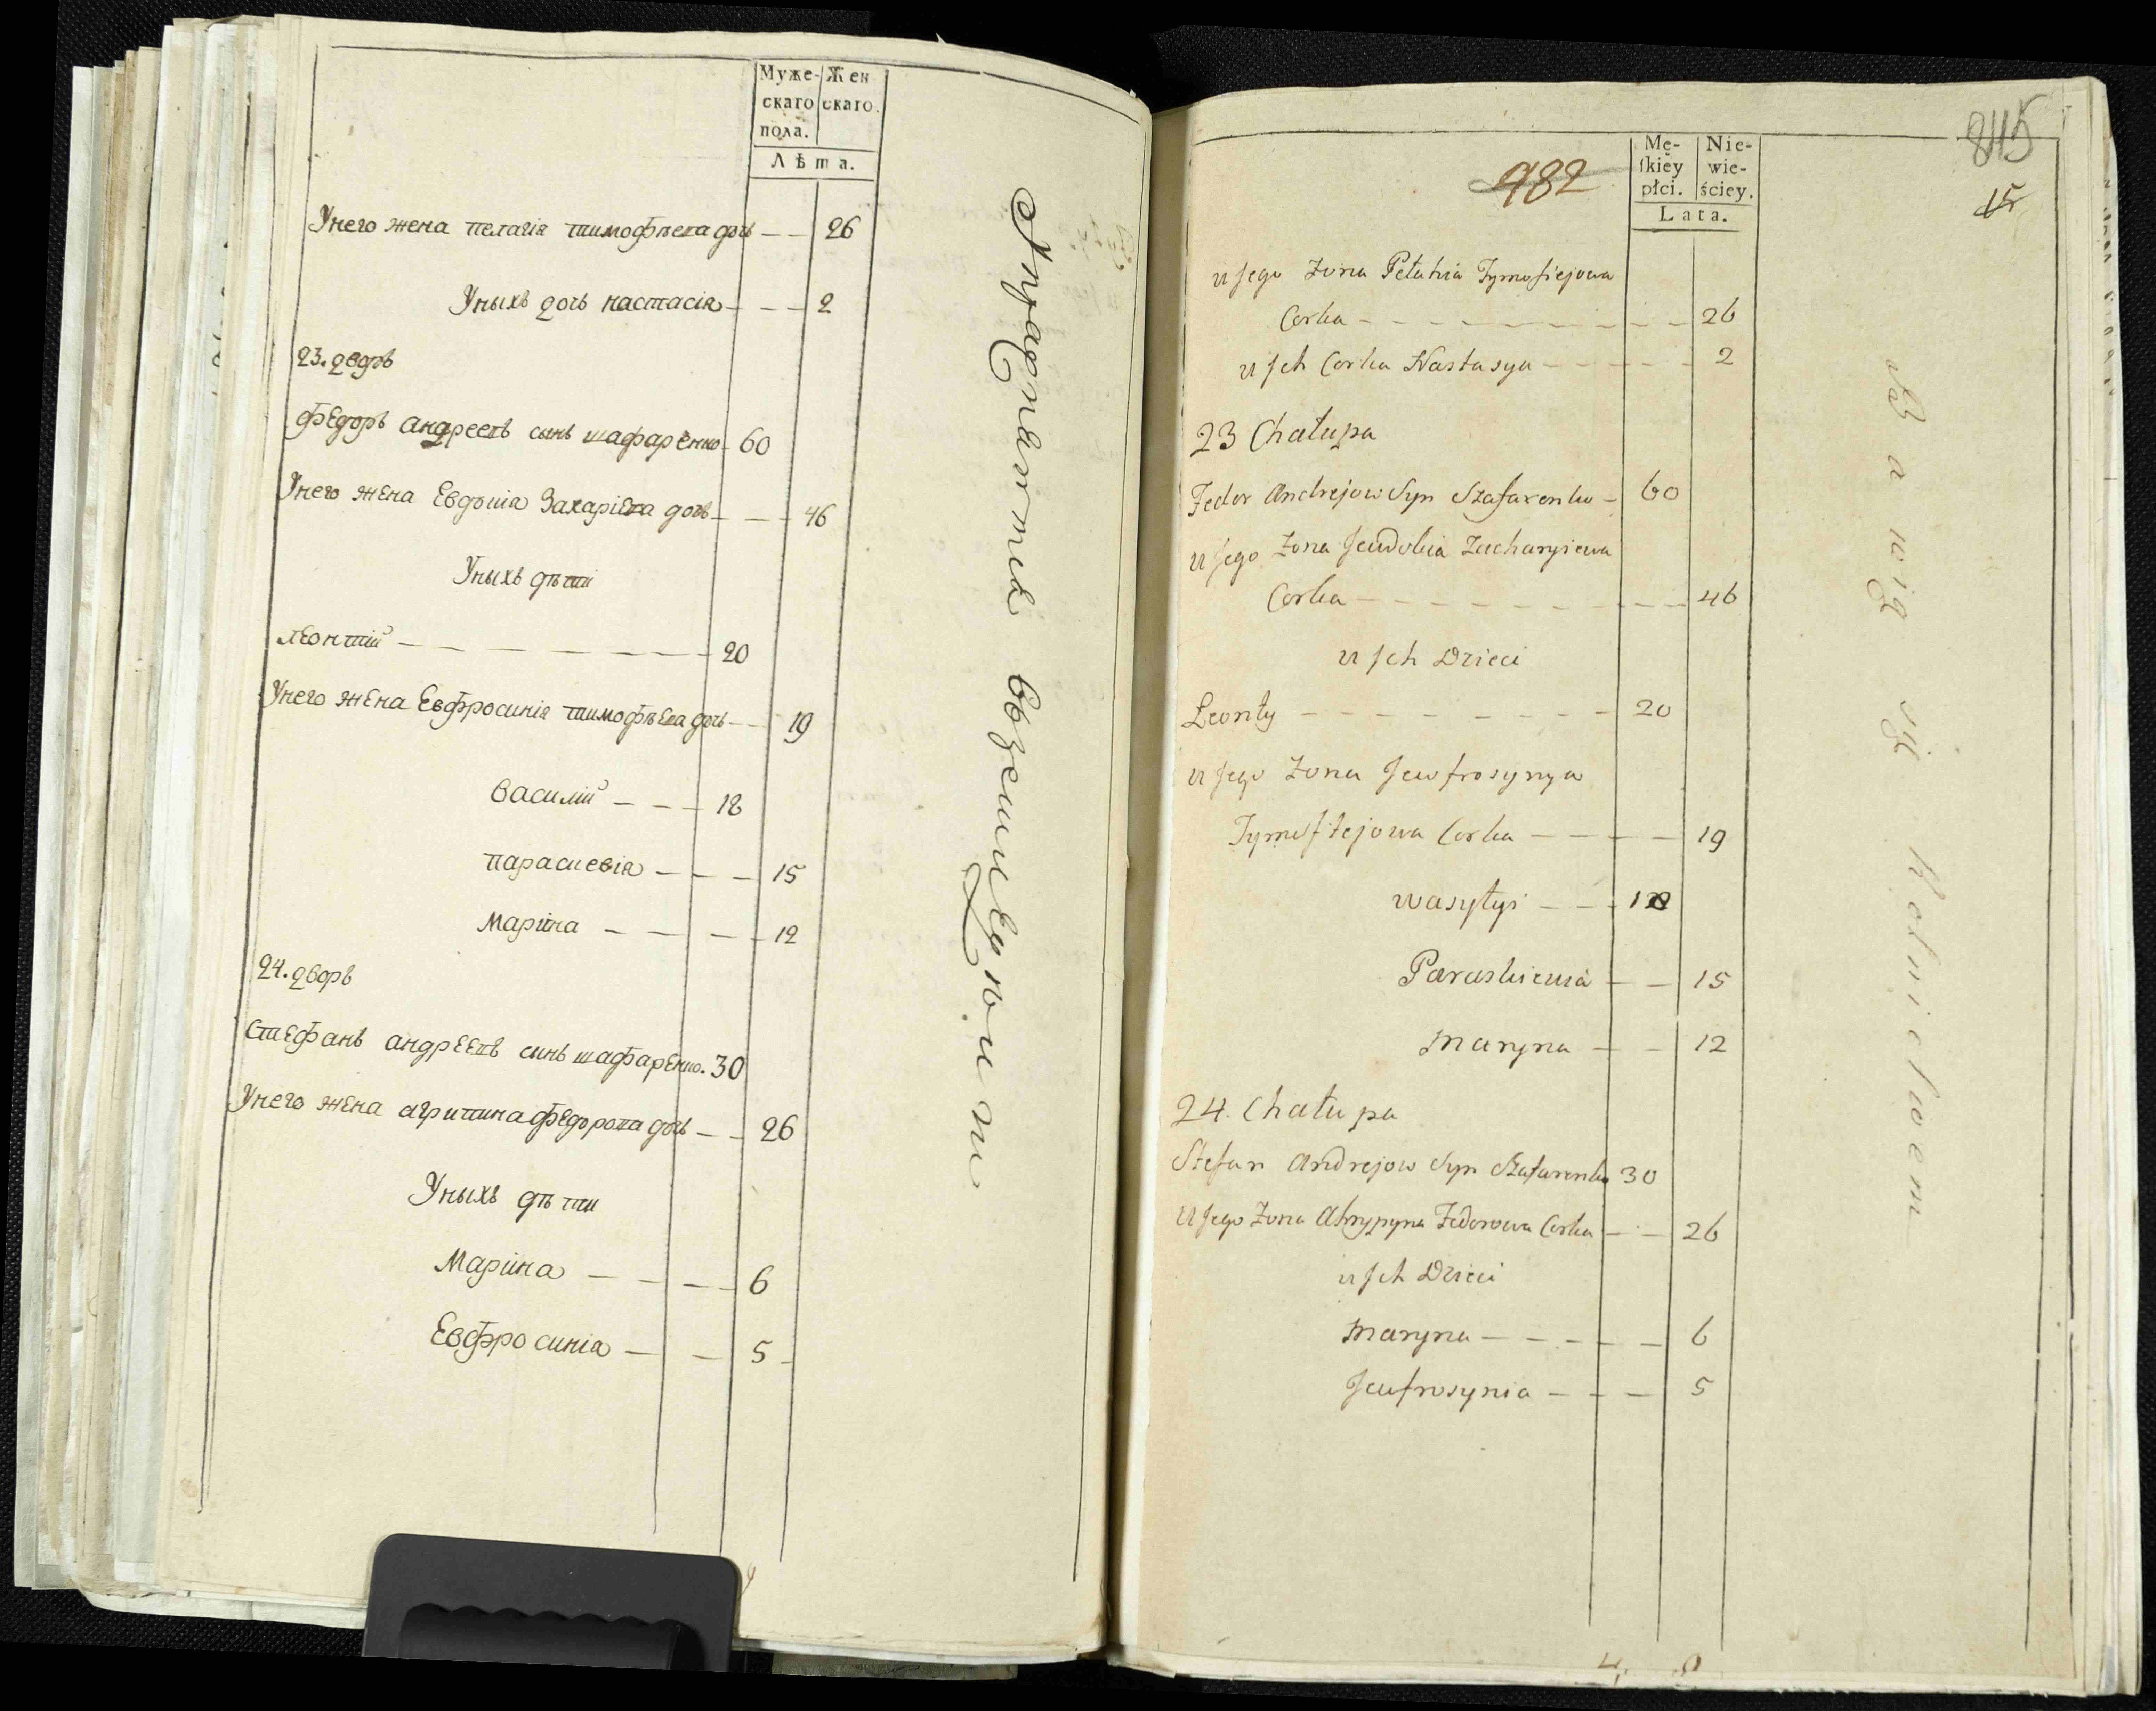 Муже- Жен
скаго скаго.
пола.
Лѣта.
Унего жена пелагія тимофѣева дочь — — 26
Уныхъ дочь настасія — — — 2
23. дворъ
федоръ андреевъ сынъ шафаренко 60
Унего жена Евдокія Захаріева дочь — — — 46
Уныхъ дѣти
леонтій — — — — — — — 20
Унего жена Евфросинія тимофѣева дочь — — 19
василій — — — 18
параскевія — — — 15
Марина — — — — 12
24. дворъ
Стефанъ андреевъ сынъ шафаренко. 30
Унего жена агрипина федорова дочь — — 26
Уныхъ дѣти
Марина — — — — 6
Евфросинія — — 5
упражняются вземледѣлии
845
15
982
Mę- Nie-
ſkiey wie-
płci. ściey.
Lata.
u Jego Żona Pełahia Tymofiejowa
Corka — — — — — — — — — 26
u Jch Corka Nastasya — — — — — 2
23 Chałupa
Fedor Andrejow Syn Szafarenko — 60
u Jego Żona Jewdokia Zacharyiewa
Corka — — — — — — — — — 46
u Jch Dzieci
Leonty — — — — — — — — 20
u Jego Żona Jewfrosynya
Tymofiejowa Corka — — — — 19
wasyłyi — — — 18
Paraskiewia — — 15
Maryna — — 12
24. Chałupa
Stefan Andrejow Syn Szafarenko 30
U Jego Żona Ahrypyna Fedorowa Corka — — 26
u Jch Dzieci
Maryna — — — — — 6
Jewfrosynia — — — 5
Bawią się Rolnictwem